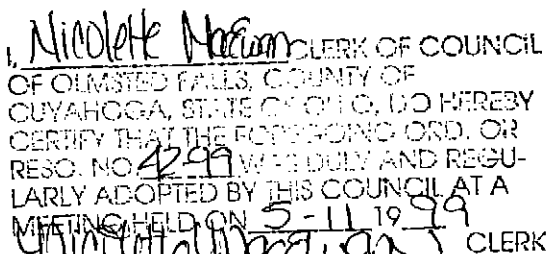 I, Nicolette MacEwan CLERK OF COUNCIL
OF OLMSTED FALLS, COUNTY OF
CUYAHOGA, STATE OF OHIO, DO HEREBY
CERTIFY THAT THE FOREGOING ORD. OR
RESO. NO 42-99 WAS DULY AND REGU-
LARLY ADOPTED BY THIS COUNCIL AT A
MEETING HELD ON 5-11 19 99
Nicolette MacEwan CLERK